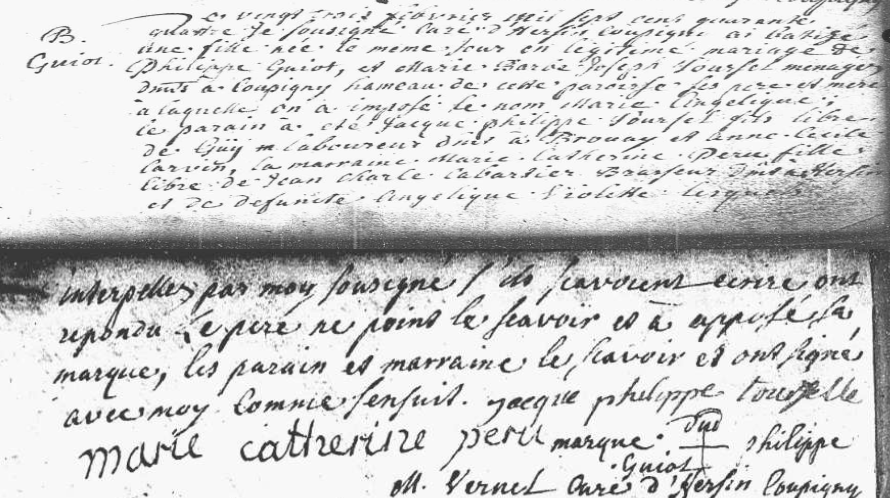 B.
Guiot.
Le vingt trois fevrier mil sept cens quarante
quattre je sousigné Curé d'Hersin Coupigni ai batizé
une fille née le meme jour en legitime mariage de
Philippe Guiot, et Marie Barbe Joseph Toursel menager
dmts à Coupigny hameau de cette paroisse ses pere et mere
à laquelle on a imposé le nom Marie Angelique;
le parain à eté Jacque philippe Toursel fils libre
de Guy m. laboureur dmt à Brouay et anne Cecile
Carvin, la marraine Marie Catherine Peru fille
libre de Jean Charle Cabartier Brasseur dmt à Hersin
et de defuncte Angelique Violette lesquels
interpellés par moy sousigné s'ils scavoient ecrire ont
repondu Le pere ne point le scavoir et à apposé sa
marque, les parain et marraine le scavoir et ont signé
avec moy Comme s'ensuit. jacque philippe tourselle
marie catherine peru marque dud philippe
Guiot
M. Vernet Curé d'Hersin Coupigny